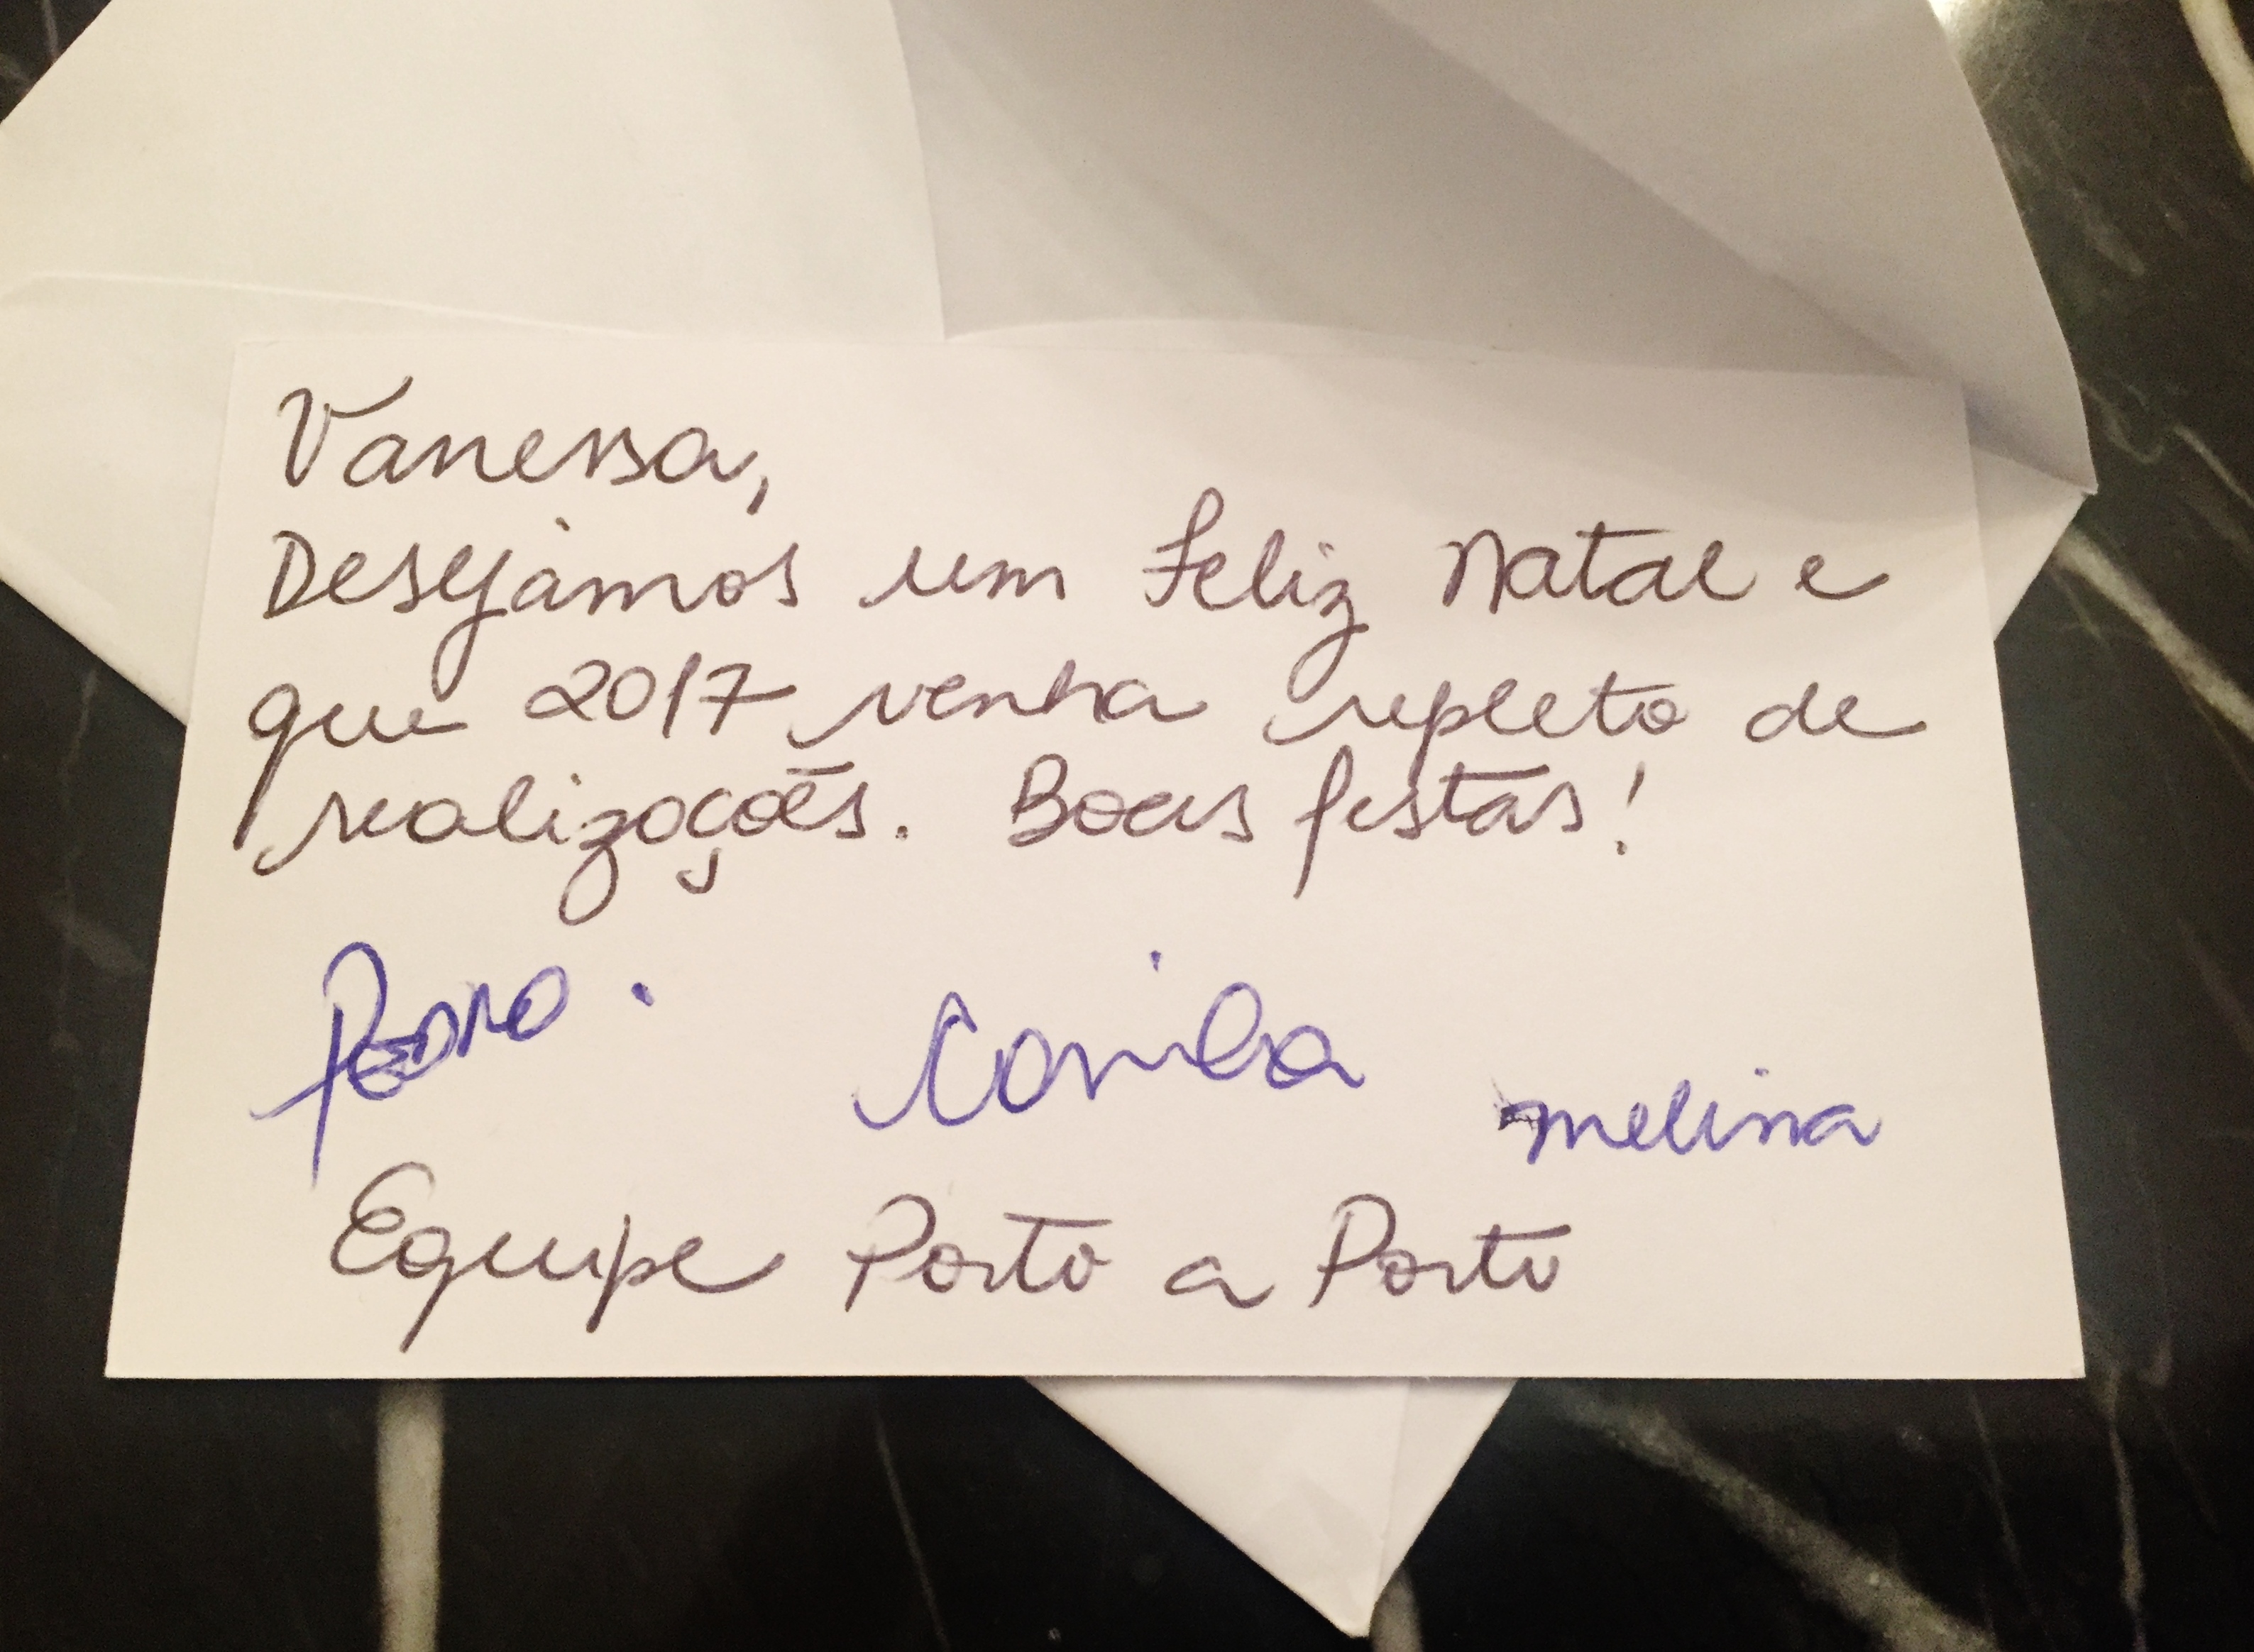 Vanessa,
Desejamos um Feliz Natal e
que 2017 venha repleto de
realizações. Boas festas!
Pedro. melina
Equipe Porto a Porto